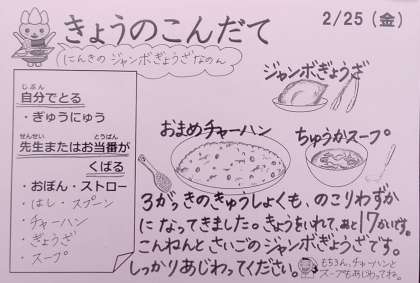 きょうのこんだて
2/25(金)
にんきの ジャンボぎょうざなのん
じぶん
自分でとる
・ぎゅうにゅう
せんせい とうばん
先生またはお当番が
くばる
・おぼん・ストロー
・はし・スプーン
・チャーハン
・ぎょうざ
・スープ
ジャンボぎょうざ
おまめチャーハン
ちゅうかスープ
3がっきのきゅうしょくも、のこりわずか
になってきました。きょうをいれて、あと17かいです。
こんねんどさいごのジャンボぎょうざです。
しっかりあじわってください。
もちろん、チャーハンと
スープもあじわってね。